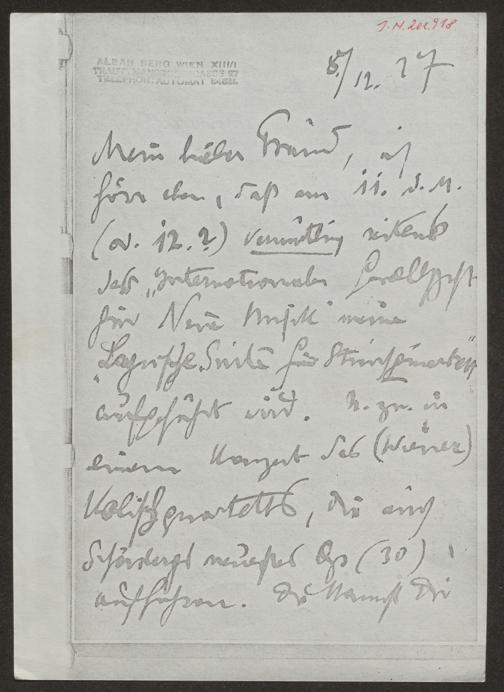 J.N. 202.918
ALBAN BERG WIEN XIII/1
TRAUTTMANSDORFFGASSE 27
TELEPHON: AUTOMAT
8/12. 27
Mein lieber Freund, ich
höre eben, daß am 11. d. M.
(od. 12.?) vermutlich seitens
der „Internationalen Gesellschaft
für Neue Musik" meine
„Lyrische Suite für Streichquartett"
aufgeführt wird. U. zw. in
einem Konzert des (Wiener)
Kolischquartetts, die auch
Schönbergs neuestes Op (30)
aufführen. Du kannst Dir